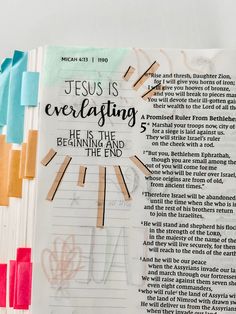 MICAH 4:13 | 1190
JESUS IS
everlasting
HE IS THE
BEGINNING AND
THE END
"Rise and thresh, Daughter Zion,
for I will give you horns of iron;
I will give you hooves of bronze,
and you will break to pieces man
You will devote their ill-gotten gain
their wealth to the Lord of all the
A Promised Ruler From Bethlehem
5 Marshal your troops now, city of
for a siege is laid against us.
They will strike Israel's ruler
on the cheek with a rod.
"But you, Bethlehem Ephrathah,
though you are small among the
out of you will come for me
one who will be ruler over Israel,
whose origins are from of old,
from ancient times."
Therefore Israel will be abandoned
until the time when she who is in
and the rest of his brothers return
to join the Israelites.
He will stand and shepherd his flock
in the strength of the Lord,
in the majesty of the name of the
And they will live securely, for then
will reach to the ends of the earth
And he will be our peace
when the Assyrians invade our la
and march through our fortresses
We will raise against them seven she
even eight commanders,
who will rule the land of Assyria wi
the land of Nimrod with drawn sw
He will deliver us from the Assyrians
when they invade our land